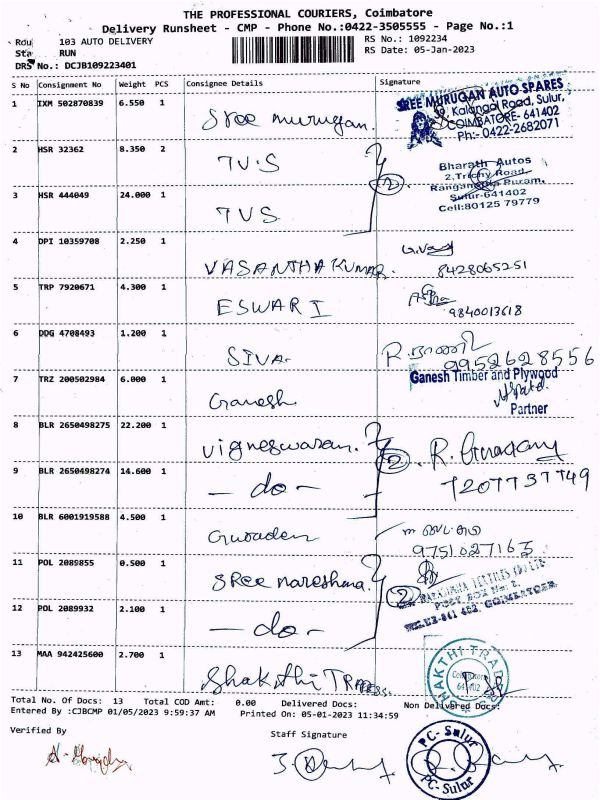 THE PROFESSIONAL COURIERS, Coimbatore
Delivery Runsheet - CMP - Phone No.:0422-3505555 - Page No.:1
103 AUTO DELIVERY
RS No.: 1092234
RUN
RS Date: 05-Jan-2023
DRS No.: DCJB109223401
S No Consignment No Weight PCS Consignee Details Signature
1 IXM 502870839 6.550 1 Sree murugan.
SREE MURUGAN AUTO SPARES
Kalangal Road, Sulur,
COIMBATORE- 641402
Ph:- 0422-2682071
2 HSR 32362 8.350 2 TVS
2
Bharath Autos
2,Trichy Road,
Puram,
Sulur-641402
Cell:80125 79779
3 HSR 444049 24.000 1 TVS
4 DPI 10359708 2.250 1 VASANTHAKUMAR.
8428065251
5 TRP 7920671 4.300 1 ESWARI
9840013618
6 DDG 4708493 1.200 1 SIVA-
R.ராணி
9952628556
7 TRZ 200502984 6.000 1 Ganesh
Ganesh Timber and Plywood
Partner
8 BLR 2650498275 22.200 1 Vigneswaran.
2
9 BLR 2650498274 14.600 1 - do -
7207737749
10 BLR 6001919588 4.500 1
9751027163
11 POL 2089855 0.500 1
2
POST BOX No. 2,
COIMBATORE
12 POL 2089932 2.100 1 - do -
13 MAA 942425600 2.700 1 Shakthi TRADERS
SHAKTHI TRADERS
Coimbatore
641402
Total No. Of Docs: 13 Total COD Amt: 0.00 Delivered Docs: Non Delivered Docs:
Entered By :CJBCMP 01/05/2023 9:59:37 AM Printed On: 05-01-2023 11:34:59
Verified By
Staff Signature
PC-Sulur
PC-Sulur